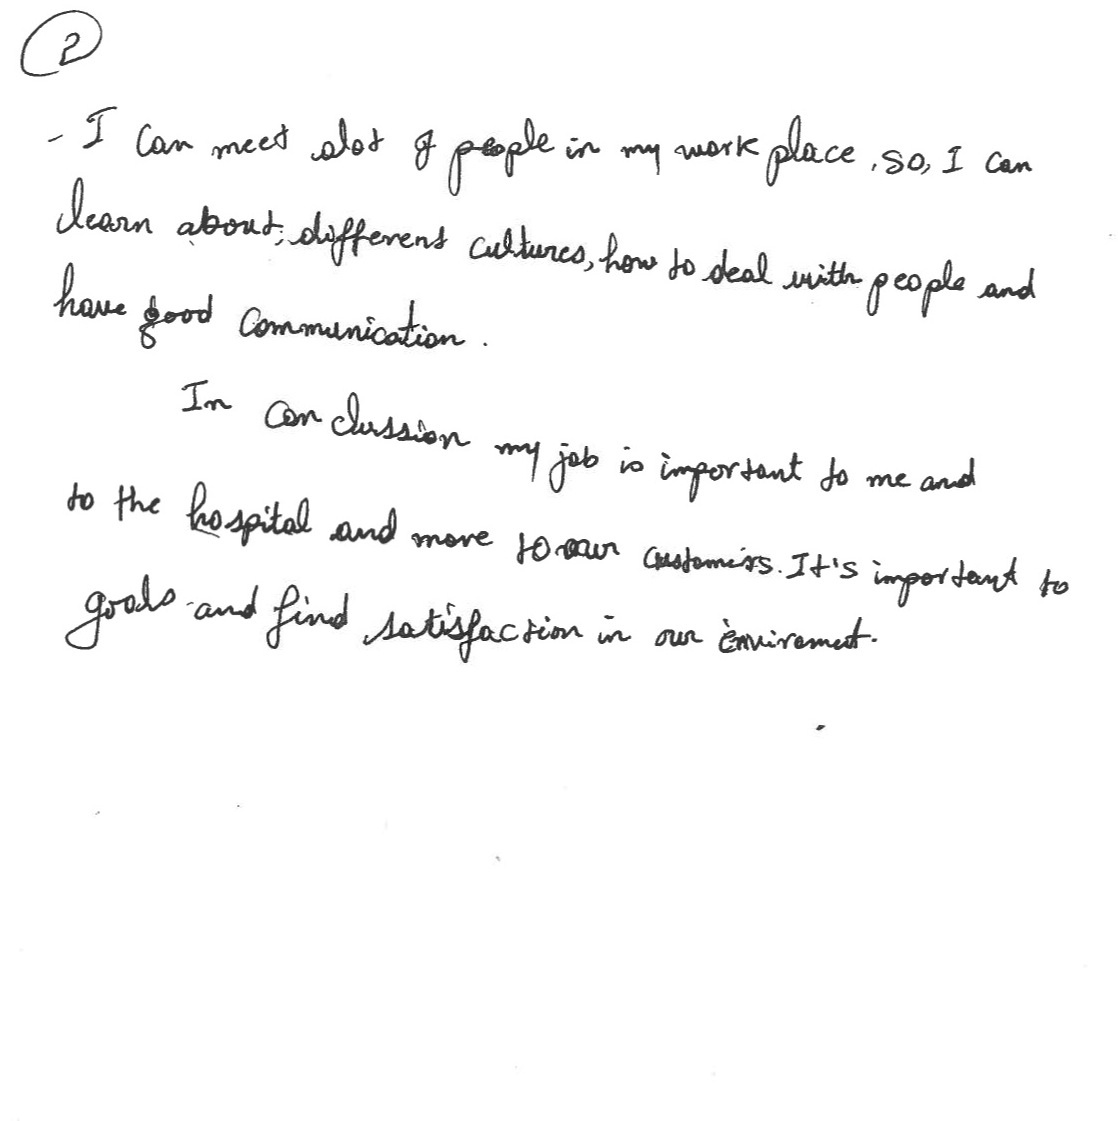 2
- I can meet alot of people in my work place, so, I can
learn about; different cultures, how to deal with people and
have good communication.
In conclussion my job is important to me and
to the hospital and more to our customers. It's important to
goals and find satisfaction in our enviroment.